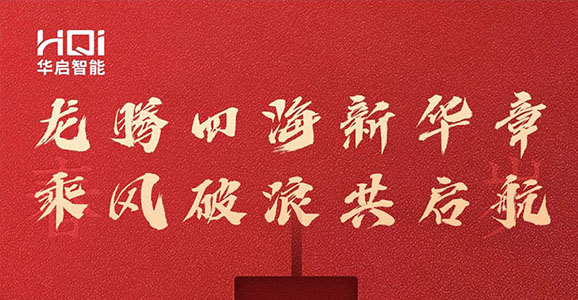 HQi
华启智能
龙腾四海新华章
乘风破浪共启航